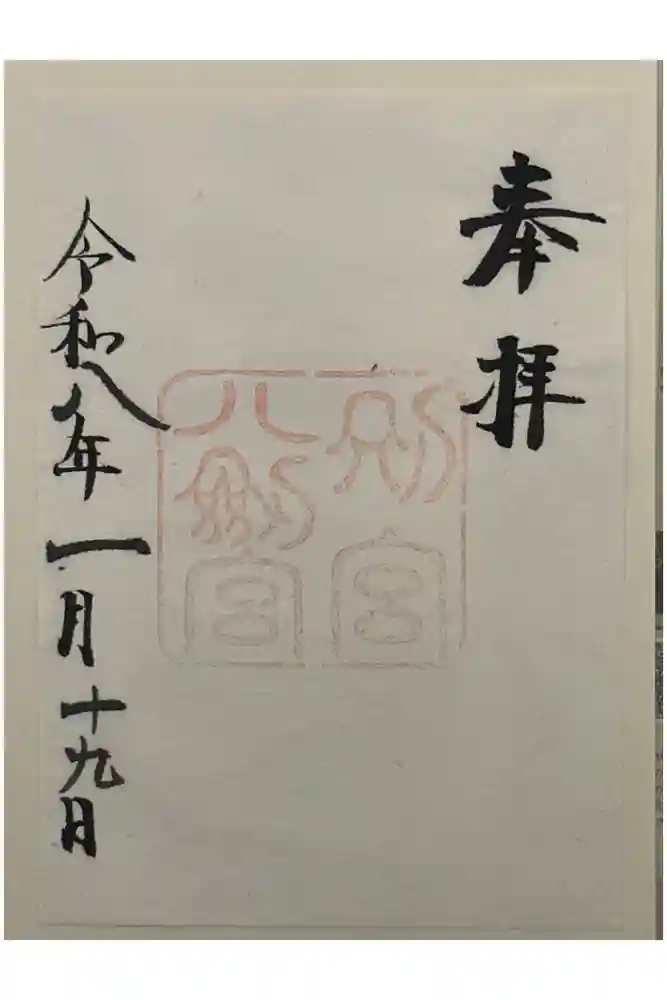 奉拝
別宮
八剣宮
令和八年一月十九日